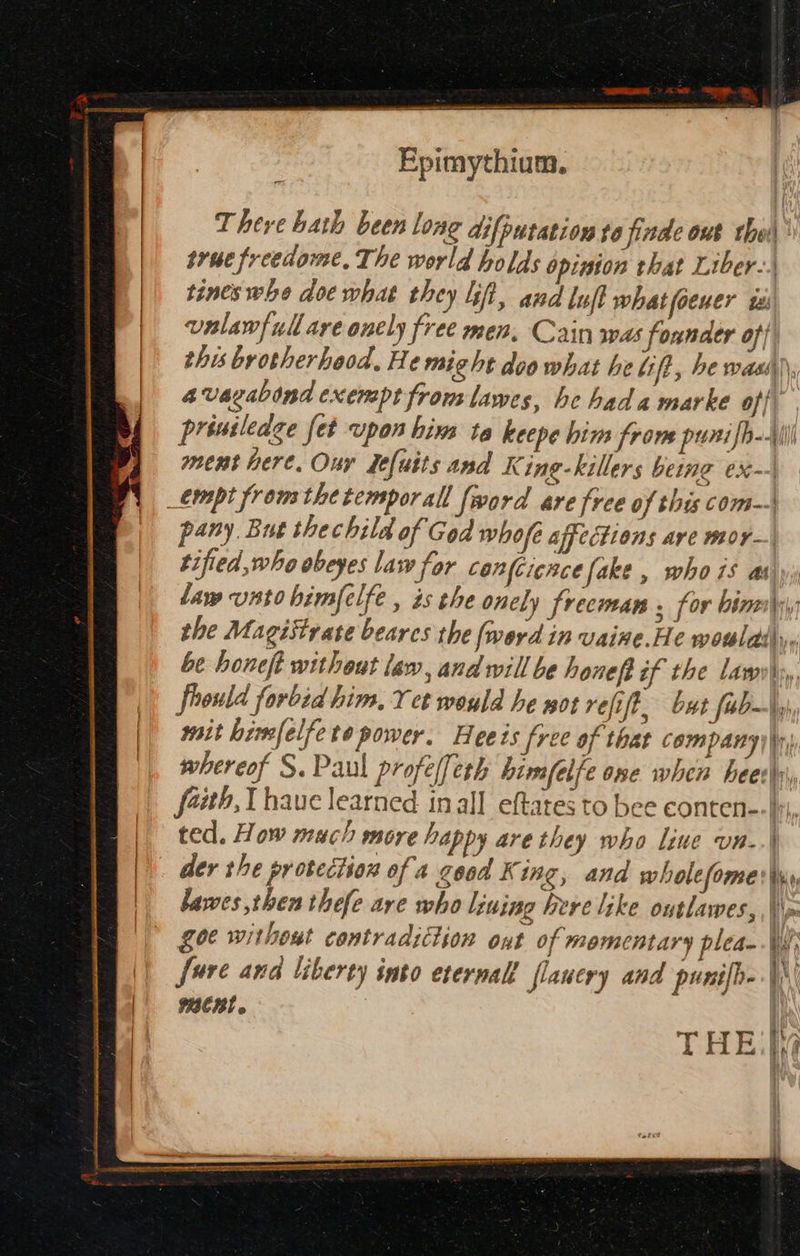 Epimythium.
There hath been long diſputation to finde out the
true freedome. The world holds opinion that Liber-
tines who doe what they liſt, and luſt whatſoeuer is
vnlawfull are onely free men. Cain was founder of
this brotherhood. He might doo what he liſt, he was
a vagabond exempt from lawes, he had a marke of
priuiledge ſet vpon him to keepe him from puniſh-
ment here. Our Ieſuits and King-killers being ex-
empt from the temporall ſword are free of this com-
pany. But the child of God whoſe affections are mor-
tified, who obeyes law for conſcience ſake, who is a
law vnto himſelfe, is the onely freeman; for him
the Magiſtrate beares the ſword in vaine. He would
be honeſt without law, and will be honeſt if the law
ſhould forbid him. Yet would he not reſiſt, but ſub-
mit himſelfe to power. Hee is free of that company
whereof S. Paul profeſſeth himſelfe one when hee
ſaith, I haue learned in all eſtates to bee conten-
ted. How much more happy are they who liue vn-
der the protection of a good King, and wholeſome
lawes, then theſe are who liuing here like outlawes,
goe without contradiction out of momentary plea-
ſure and liberty into eternall ſlauery and puniſh-
ment.
THE